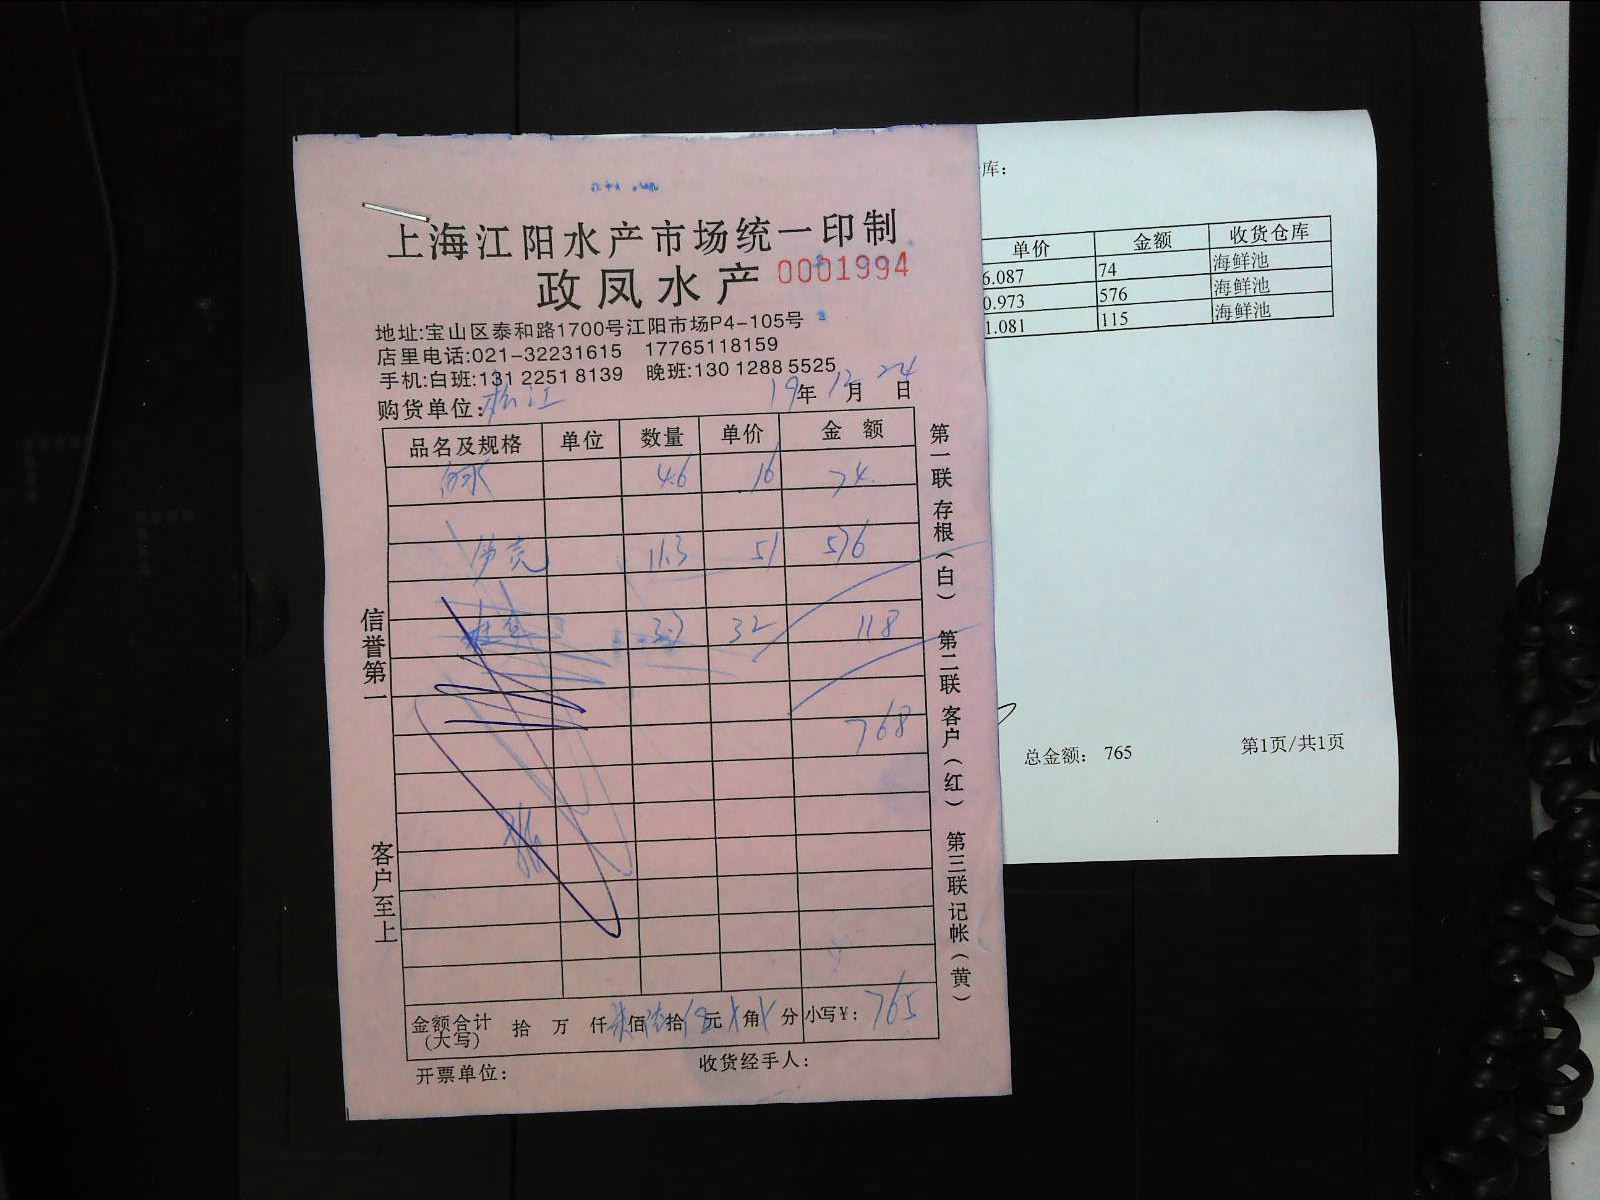 上海江阳水产市场统一印制
政凤水产 0001994
地址:宝山区泰和路1700号江阳市场P4-105号
店里电话:021-32231615 17765118159
手机:白班:131 2251 8139 晚班:130 1288 5525
购货单位:松江 19年12月24日
品名及规格 单位 数量 单价 金额
4.6 16 74
11.3 51 576
3.7 32 118
768
金额合计(大写) 拾 万 仟 佰 拾 元 角 分 小写¥: 765
开票单位: 收货经手人:
信誉第一
客户至上
第一联存根(白)
第二联客户(红)
第三联记帐(黄)
库:
单价 金额 收货仓库
6.087 74 海鲜池
0.973 576 海鲜池
1.081 115 海鲜池
总金额: 765 第1页/共1页